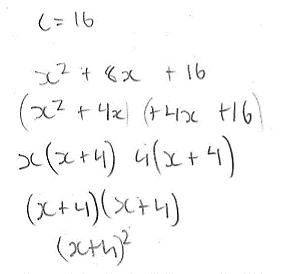 c = 16
x² + 8x + 16
(x² + 4x) (+4x +16)
x(x+4) 4(x+4)
(x+4)(x+4)
(x+4)²